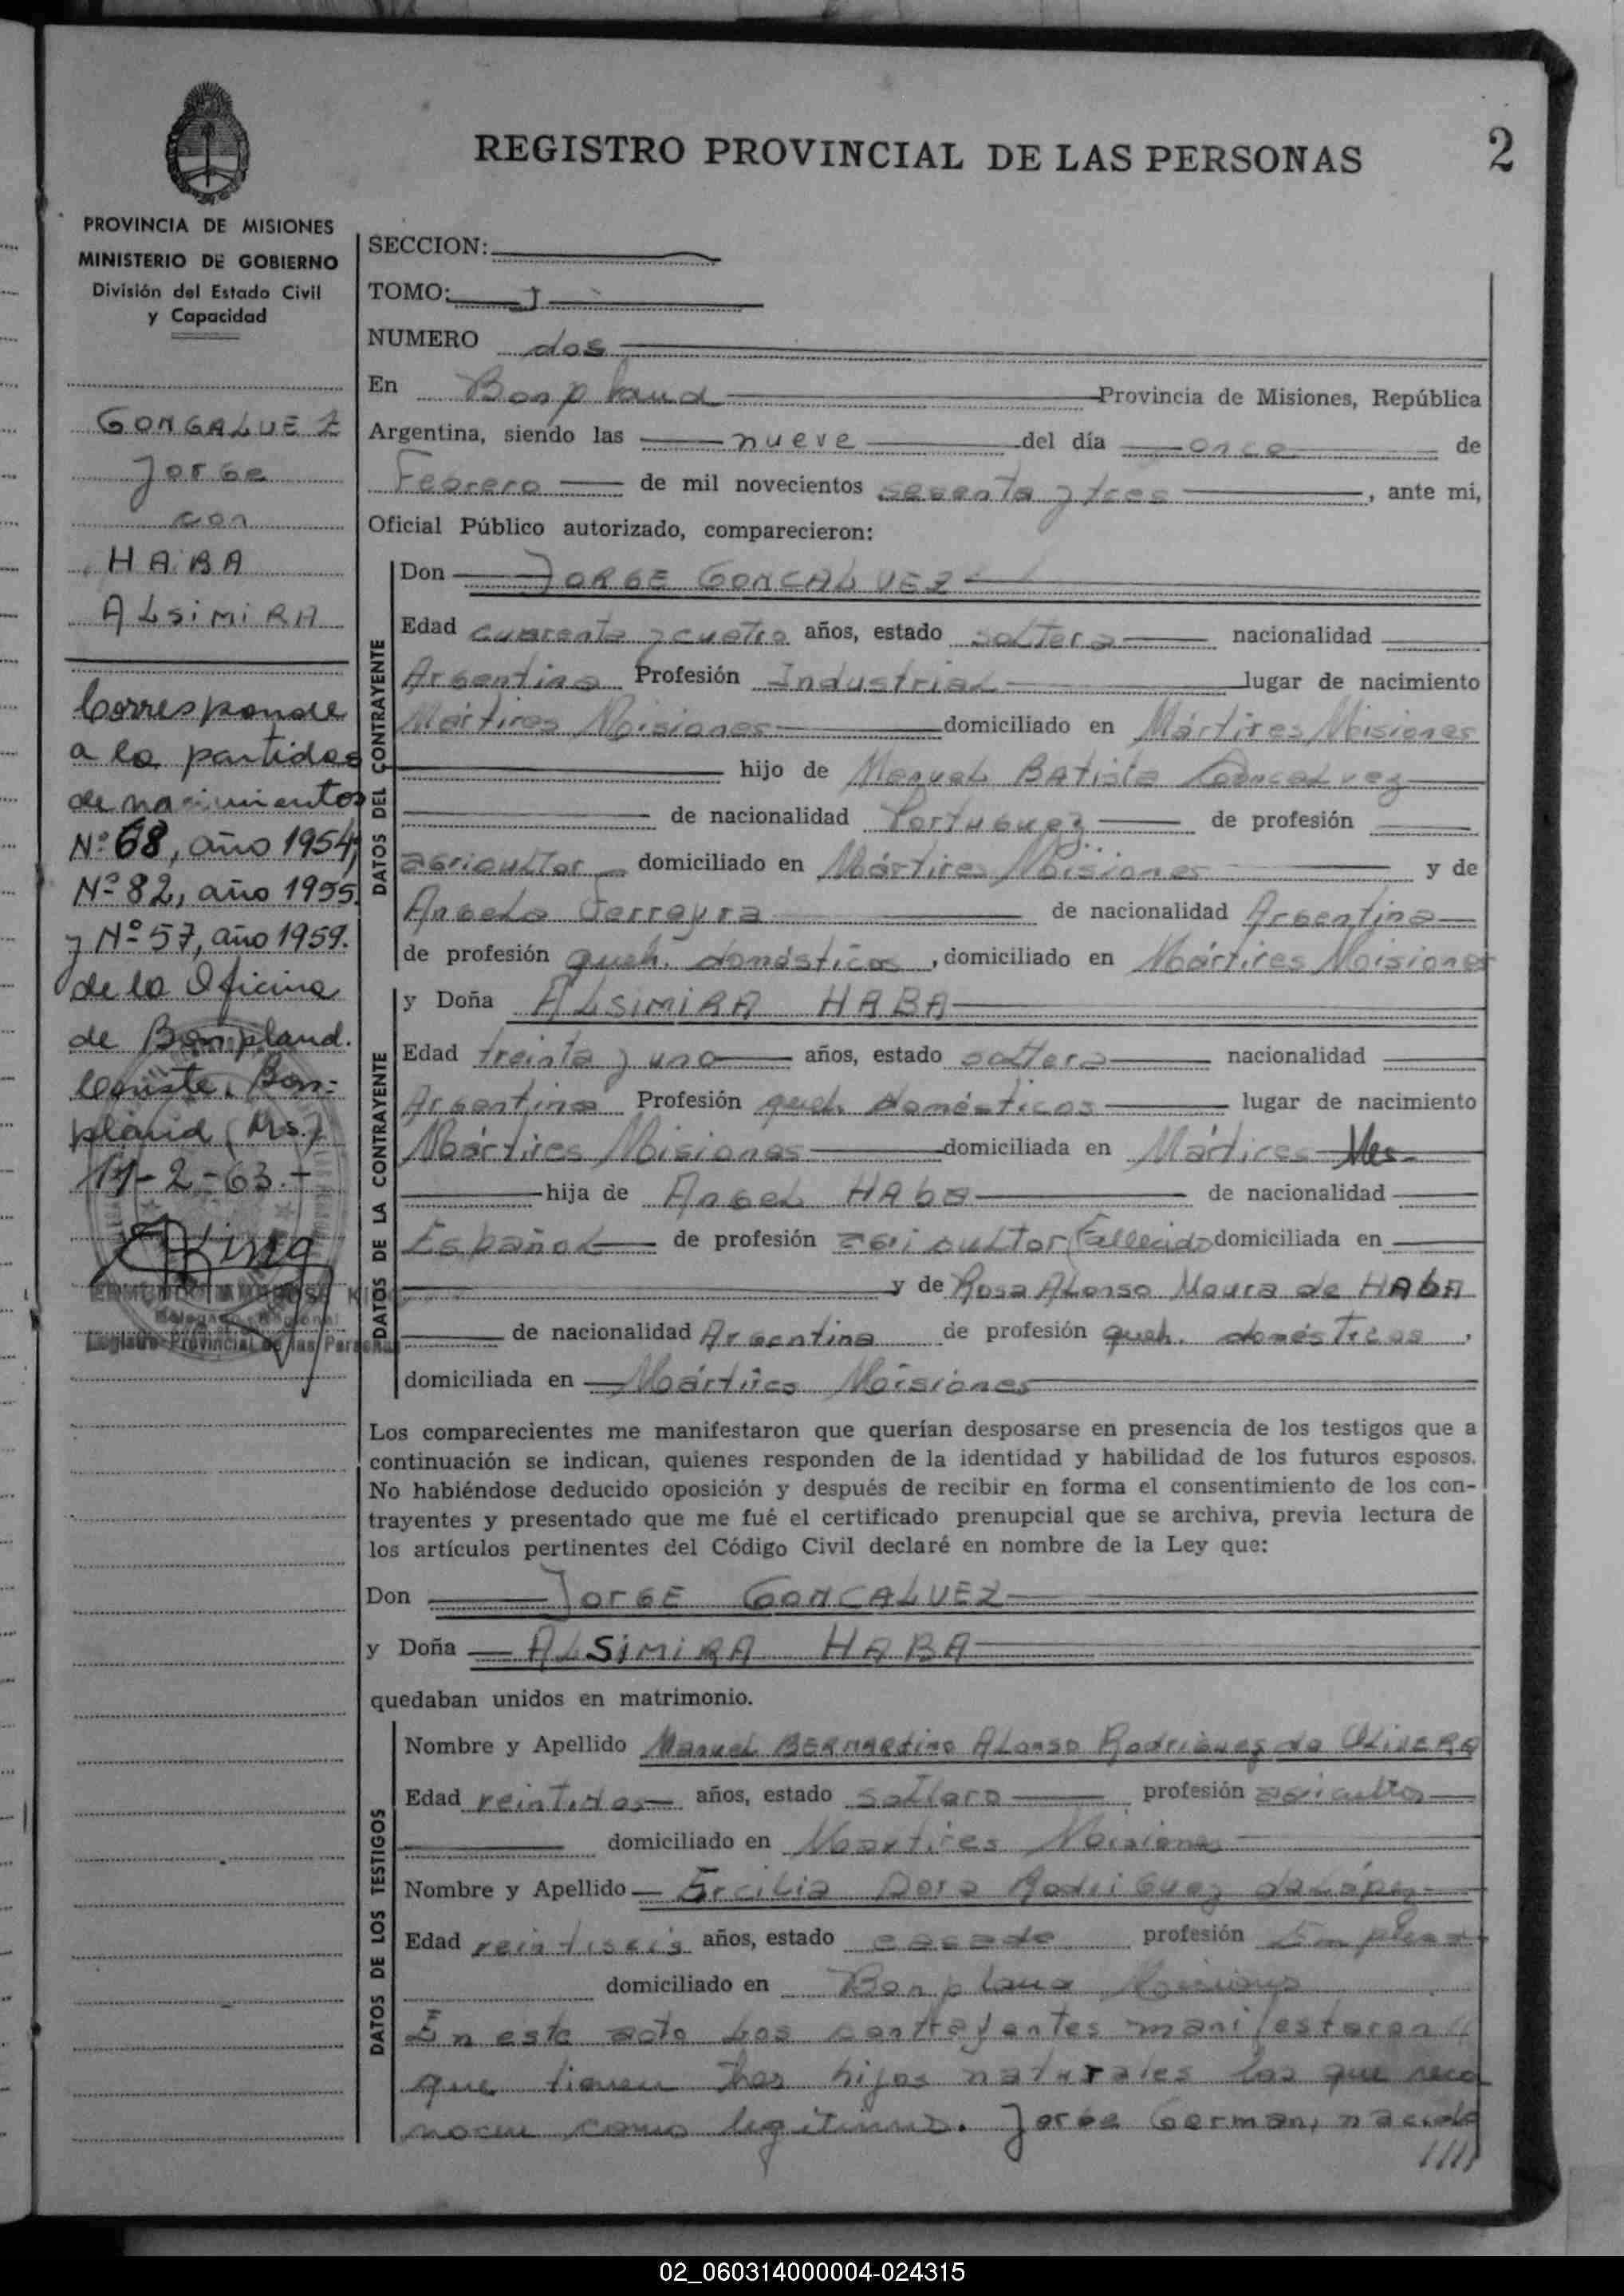 REGISTRO PROVINCIAL DE LAS PERSONAS
2
PROVINCIA DE MISIONES
MINISTERIO DE GOBIERNO
División del Estado Civil
y Capacidad
GONGALUEZ
Jorge
con
HABA
ALSIMIRA
Corresponde
a la partidas
de nacimientos
Nº 68, año 1954,
Nº 82, año 1955.
y Nº 57, año 1959.
de la Oficina
de Bonpland.
Conste. Bon-
pland (Ms.)
11-2-63.-
Registro Provincial de las Personas
SECCION:
TOMO: I
NUMERO dos
En Bonpland Provincia de Misiones, República
Argentina, siendo las nueve del día once de
Febrero de mil novecientos sesenta y tres, ante mi,
Oficial Público autorizado, comparecieron:
DATOS DEL CONTRAYENTE
Don JORGE GONCALVEZ
Edad cuarenta y cuatro años, estado soltero nacionalidad
Argentino Profesión Industrial lugar de nacimiento
Mártires Misiones domiciliado en Mártires Misiones
hijo de Manuel Batista Goncalvez
de nacionalidad Portuguez de profesión
agricultor domiciliado en Mártires Misiones y de
Angela Ferreyra de nacionalidad Argentina
de profesión queh. domésticos, domiciliado en Mártires Misiones
DATOS DE LA CONTRAYENTE
y Doña ALSIMIRA HABA
Edad treinta y uno años, estado soltera nacionalidad
Argentina Profesión queh. domésticos lugar de nacimiento
Mártires Misiones domiciliada en Mártires Mes.
hija de Angel HAba de nacionalidad
Español de profesión agricultor (Fallecido domiciliada en
y de Rosa Alonso Moura de HAbA
de nacionalidad Argentina de profesión queh. domésticos,
domiciliada en Mártires Misiones
Los comparecientes me manifestaron que querían desposarse en presencia de los testigos que a
continuación se indican, quienes responden de la identidad y habilidad de los futuros esposos.
No habiéndose deducido oposición y después de recibir en forma el consentimiento de los con-
trayentes y presentado que me fué el certificado prenupcial que se archiva, previa lectura de
los artículos pertinentes del Código Civil declaré en nombre de la Ley que:
Don JORGE GONCALVEZ
y Doña ALSIMIRA HABA
quedaban unidos en matrimonio.
DATOS DE LOS TESTIGOS
Nombre y Apellido Manuel BERNARdino ALonso Rodriguez de OLIVERA
Edad veintidos años, estado soltero profesión agricultor
domiciliado en Martires Misiones
Nombre y Apellido Ercilia Dora Rodriguez de López
Edad veintiseis años, estado casada profesión Emplead
domiciliado en Bonpland Misiones
En este acto los contrayentes manifestaron
que tienen tres hijos naturales los que reco
nocen como legitimos. Jorge German, nacido
////
02_060314000004-024315